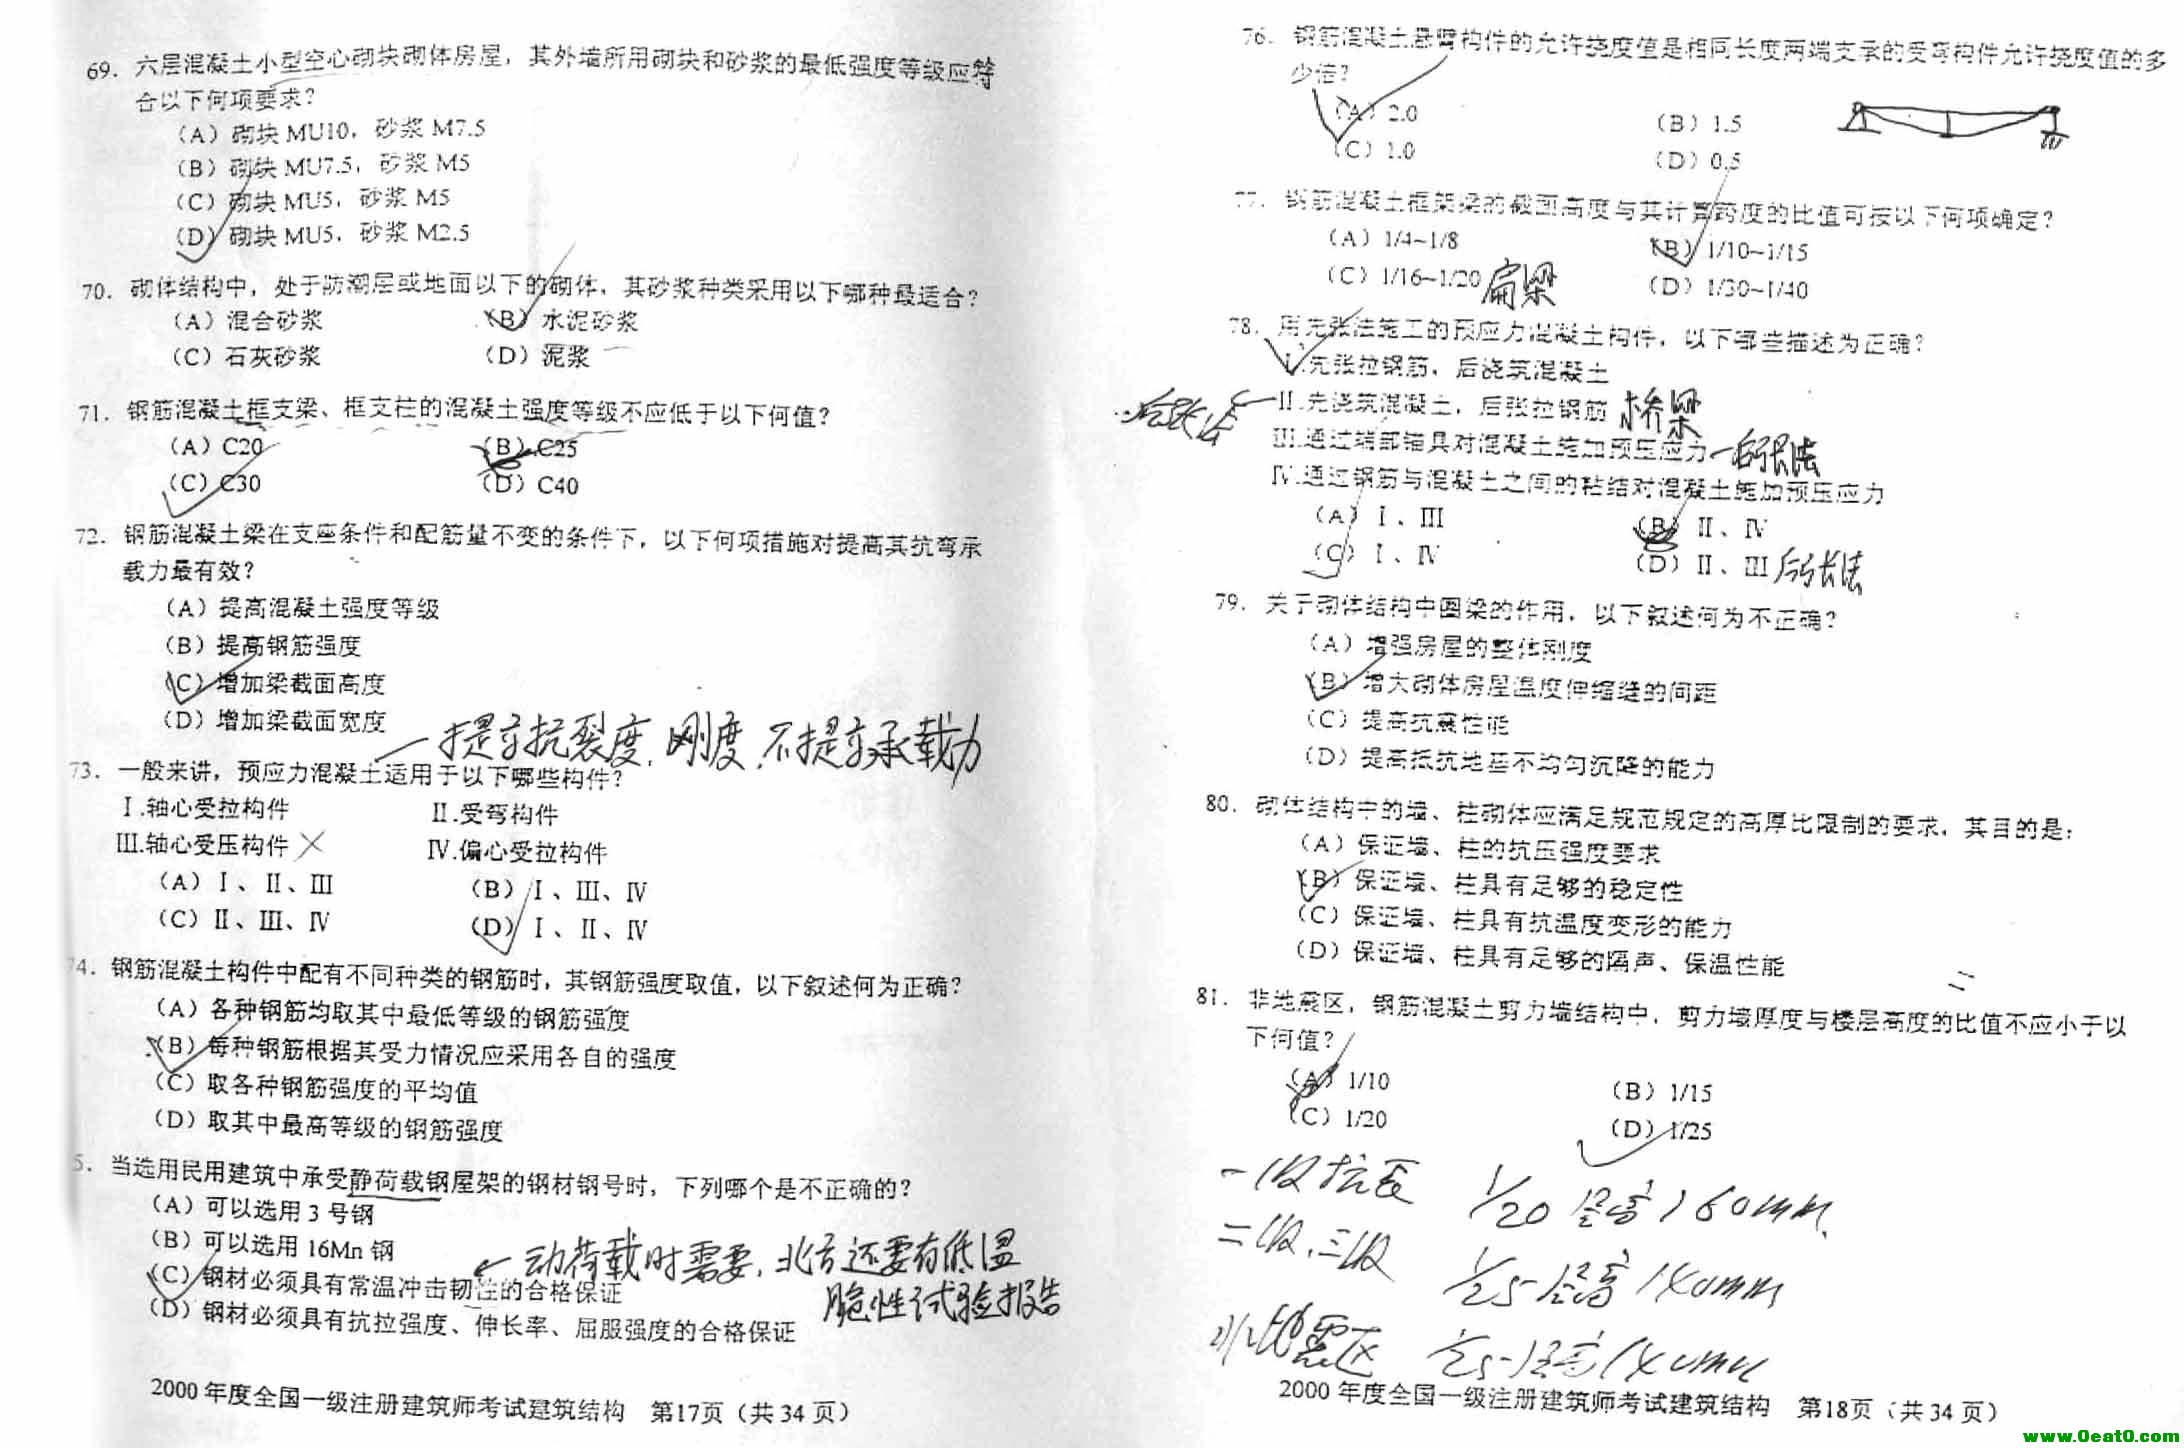 69．六层混凝土小型空心砌块砌体房屋，其外墙所用砌块和砂浆的最低强度等级应符
合以下何项要求？
（A）砌块 MU10，砂浆 M7.5
（B）砌块 MU7.5，砂浆 M5
（C）砌块 MU5，砂浆 M5
（D）砌块 MU5，砂浆 M2.5
70．砌体结构中，处于防潮层或地面以下的砌体，其砂浆种类采用以下哪种最适合？
（A）混合砂浆 （B）水泥砂浆
（C）石灰砂浆 （D）泥浆
71．钢筋混凝土框支梁、框支柱的混凝土强度等级不应低于以下何值？
（A）C20 （B）C25
（C）C30 （D）C40
72．钢筋混凝土梁在支座条件和配筋量不变的条件下，以下何项措施对提高其抗弯承
载力最有效？
（A）提高混凝土强度等级
（B）提高钢筋强度
（C）增加梁截面高度
（D）增加梁截面宽度
提高抗裂度，刚度，不提高承载力
73．一般来讲，预应力混凝土适用于以下哪些构件？
Ⅰ.轴心受拉构件 Ⅱ.受弯构件
Ⅲ.轴心受压构件 Ⅳ.偏心受拉构件
（A）Ⅰ、Ⅱ、Ⅲ （B）Ⅰ、Ⅲ、Ⅳ
（C）Ⅱ、Ⅲ、Ⅳ （D）Ⅰ、Ⅱ、Ⅳ
74．钢筋混凝土构件中配有不同种类的钢筋时，其钢筋强度取值，以下叙述何为正确？
（A）各种钢筋均取其中最低等级的钢筋强度
（B）每种钢筋根据其受力情况应采用各自的强度
（C）取各种钢筋强度的平均值
（D）取其中最高等级的钢筋强度
5．当选用民用建筑中承受静荷载钢屋架的钢材钢号时，下列哪个是不正确的？
（A）可以选用 3 号钢
（B）可以选用 16Mn 钢
（C）钢材必须具有常温冲击韧性的合格保证
（D）钢材必须具有抗拉强度、伸长率、屈服强度的合格保证
动荷载时需要，北方还要有低温
脆性试验报告
2000 年度全国一级注册建筑师考试建筑结构 第17页（共 34 页）
76．钢筋混凝土悬臂构件的允许挠度值是相同长度两端支承的受弯构件允许挠度值的多
少倍？
（A）2.0 （B）1.5
（C）1.0 （D）0.5
77．钢筋混凝土框架梁的截面高度与其计算跨度的比值可按以下何项确定？
（A）1/4~1/8 （B）1/10~1/15
（C）1/16~1/20 扁梁 （D）1/30~1/40
78．用先张法施工的预应力混凝土构件，以下哪些描述为正确？
Ⅰ.先张拉钢筋，后浇筑混凝土
后张法 Ⅱ.先浇筑混凝土，后张拉钢筋 桥梁
Ⅲ.通过端部锚具对混凝土施加预压应力 后张法
Ⅳ.通过钢筋与混凝土之间的粘结对混凝土施加预压应力
（A）Ⅰ、Ⅲ （B）Ⅱ、Ⅳ
（C）Ⅰ、Ⅳ （D）Ⅱ、Ⅲ 后张法
79．关于砌体结构中圈梁的作用，以下叙述何为不正确？
（A）增强房屋的整体刚度
（B）增大砌体房屋温度伸缩缝的间距
（C）提高抗震性能
（D）提高抵抗地基不均匀沉降的能力
80．砌体结构中的墙、柱砌体应满足规范规定的高厚比限制的要求，其目的是：
（A）保证墙、柱的抗压强度要求
（B）保证墙、柱具有足够的稳定性
（C）保证墙、柱具有抗温度变形的能力
（D）保证墙、柱具有足够的隔声、保温性能
81．非地震区，钢筋混凝土剪力墙结构中，剪力墙厚度与楼层高度的比值不应小于以
下何值？
（A）1/10 （B）1/15
（C）1/20 （D）1/25
一级抗震 1/20 层高 160mm
二级，三级 1/25 层高 140mm
非地震区 1/25 层高 140mm
2000 年度全国一级注册建筑师考试建筑结构 第18页（共 34 页）
www.0eat0.com